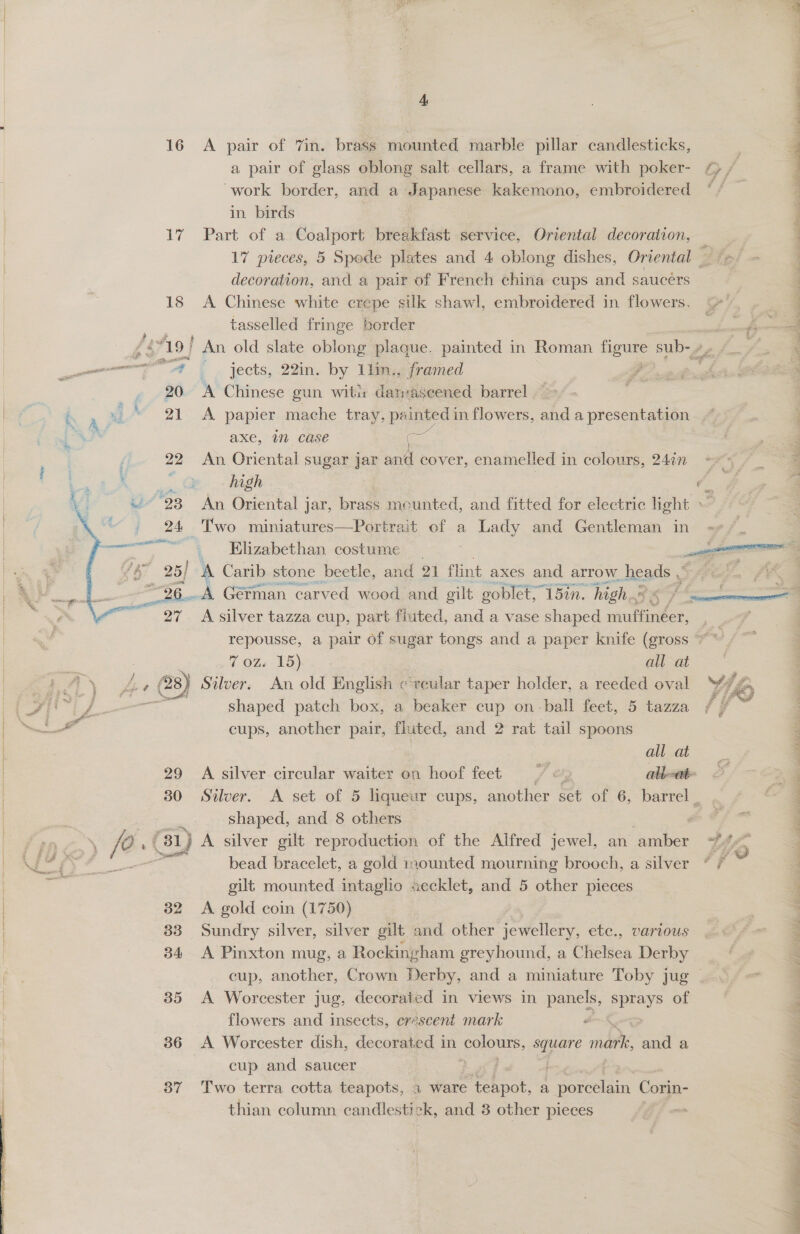 4
16 A pair of 7in. brass mounted marble pillar candlesticks,
a pair of glass oblong salt cellars, a frame with poker-
work border, and a Japanese kakemono, embroidered
in birds
17 Part of a Coalport breakfast service, Oriental decoration,
17 pieces, 5 Spode plates and 4 oblong dishes, Oriental
decoration, and a pair of French china cups and saucers
18 A Chinese white crepe silk shawl, embroidered in flowers.
tasselled fringe border
19 An old slate oblong plaque. painted in Roman figure sub-
jects, 22in. by 11in., framed
20 A Chinese gun with damascened barrel
21 A papier mache tray, painted in flowers, and a presentation
axe, in case
22 An Oriental sugar jar and cover, enamelled in colours, 24in
high
23 An Oriental jar, brass mounted, and fitted for electric light
24 Two miniatures—Portrait of a Lady and Gentleman in
Elizabethan costume
25 A Carib stone beetle, and 21 flint axes and arrow heads
26 A German carved wood and gilt goblet, 15in. high
27 A silver tazza cup, part fluted, and a vase shaped muffineer,
repousse, a pair of sugar tongs and a paper knife (gross
7 oz. 15) all at
28 Silver. An old English circular taper holder, a reeded oval
shaped patch box, a beaker cup on ball feet, 5 tazza
cups, another pair, fluted, and 2 rat tail spoons
all at
29 A silver circular waiter on hoof feet all at
30 Silver. A set of 5 liqueur cups, another set of 6, barrel
shaped, and 8 others
31 A silver gilt reproduction of the Alfred jewel, an amber
bead bracelet, a gold mounted mourning brooch, a silver
gilt mounted intaglio necklet, and 5 other pieces
32 A gold coin (1750)
33 Sundry silver, silver gilt and other jewellery, etc., various
34 A Pinxton mug, a Rockingham greyhound, a Chelsea Derby
cup, another, Crown Derby, and a miniature Toby jug
35 A Worcester jug, decorated in views in panels, sprays of
flowers and insects, crescent mark
36 A Worcester dish, decorated in colours, square mark, and a
cup and saucer
37 Two terra cotta teapots, a ware teapot, a porcelain Corin-
thian column candlestick, and 3 other pieces